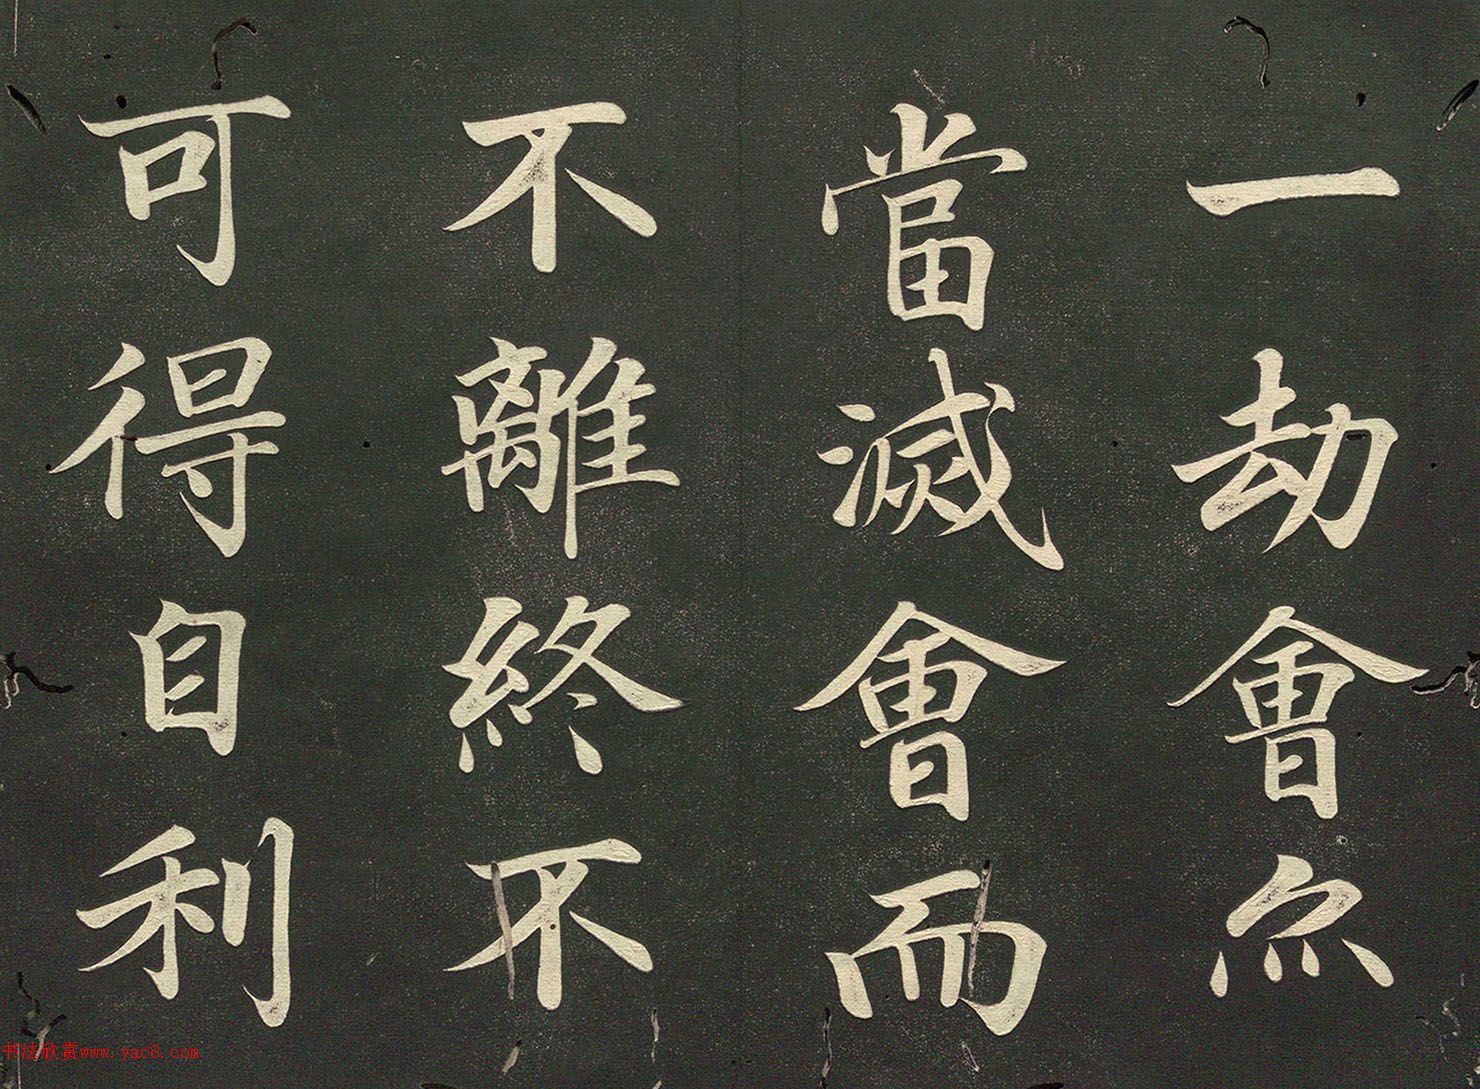 一劫會亦
當滅會而
不離終不
可得自利
书法欣赏www.yac8.com